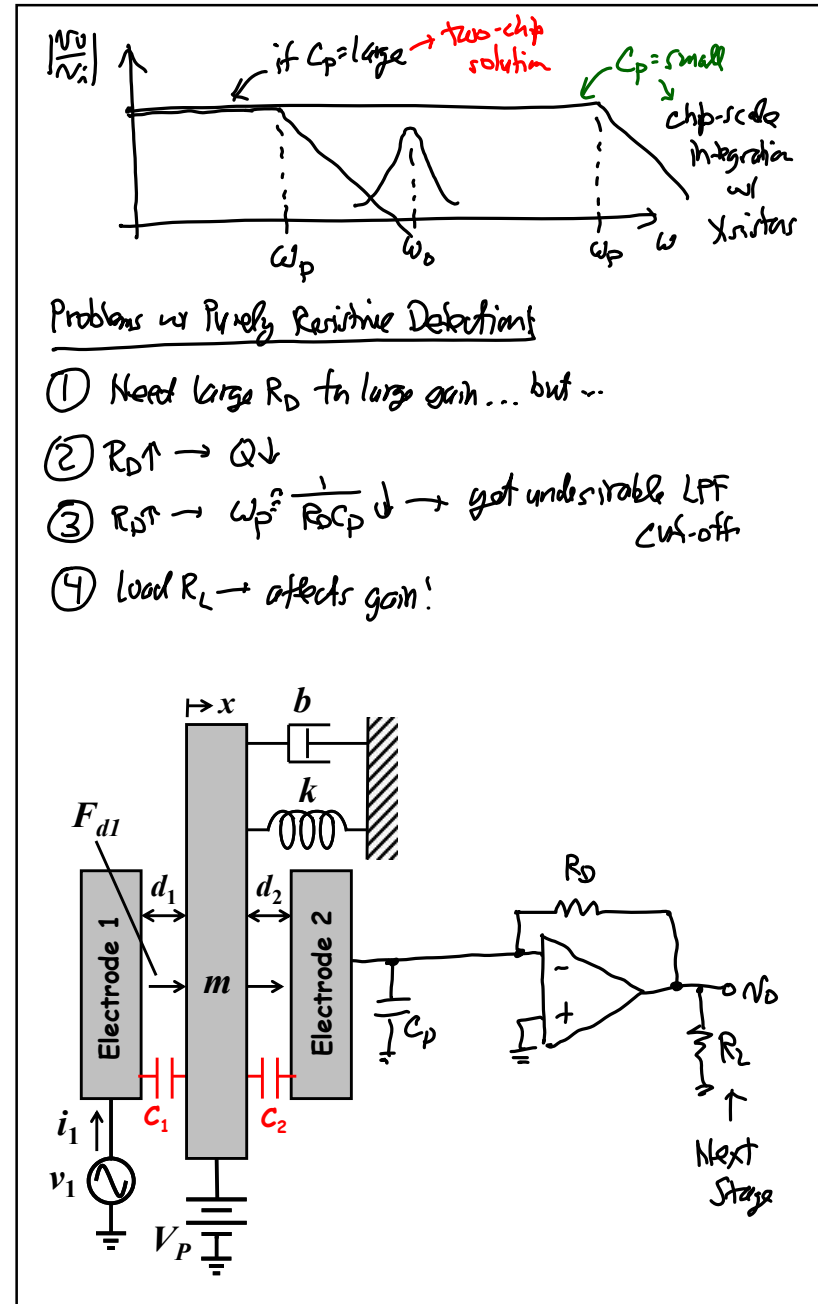 |v₀/vᵢ|
if Cₚ = large → two-chip solution
Cₚ = small
chip-scale
integration
w/
Xsistors
ωₚ
ω₀
ωₚ
ω
Problems w/ Purely Resistive Detection:
① Need large R_D for large gain... but...
② R_D↑ → Q↓
③ R_D↑ → ωₚ = 1/(R_D Cₚ) ↓ → get undesirable LPF
cut-off
④ Load R_L → affects gain!
x
b
k
F_d1
d₁
d₂
R_D
Electrode 1
m
Electrode 2
−
+
Cₚ
v₀
R_L
C₁
C₂
i₁
v₁
V_P
Next
Stage